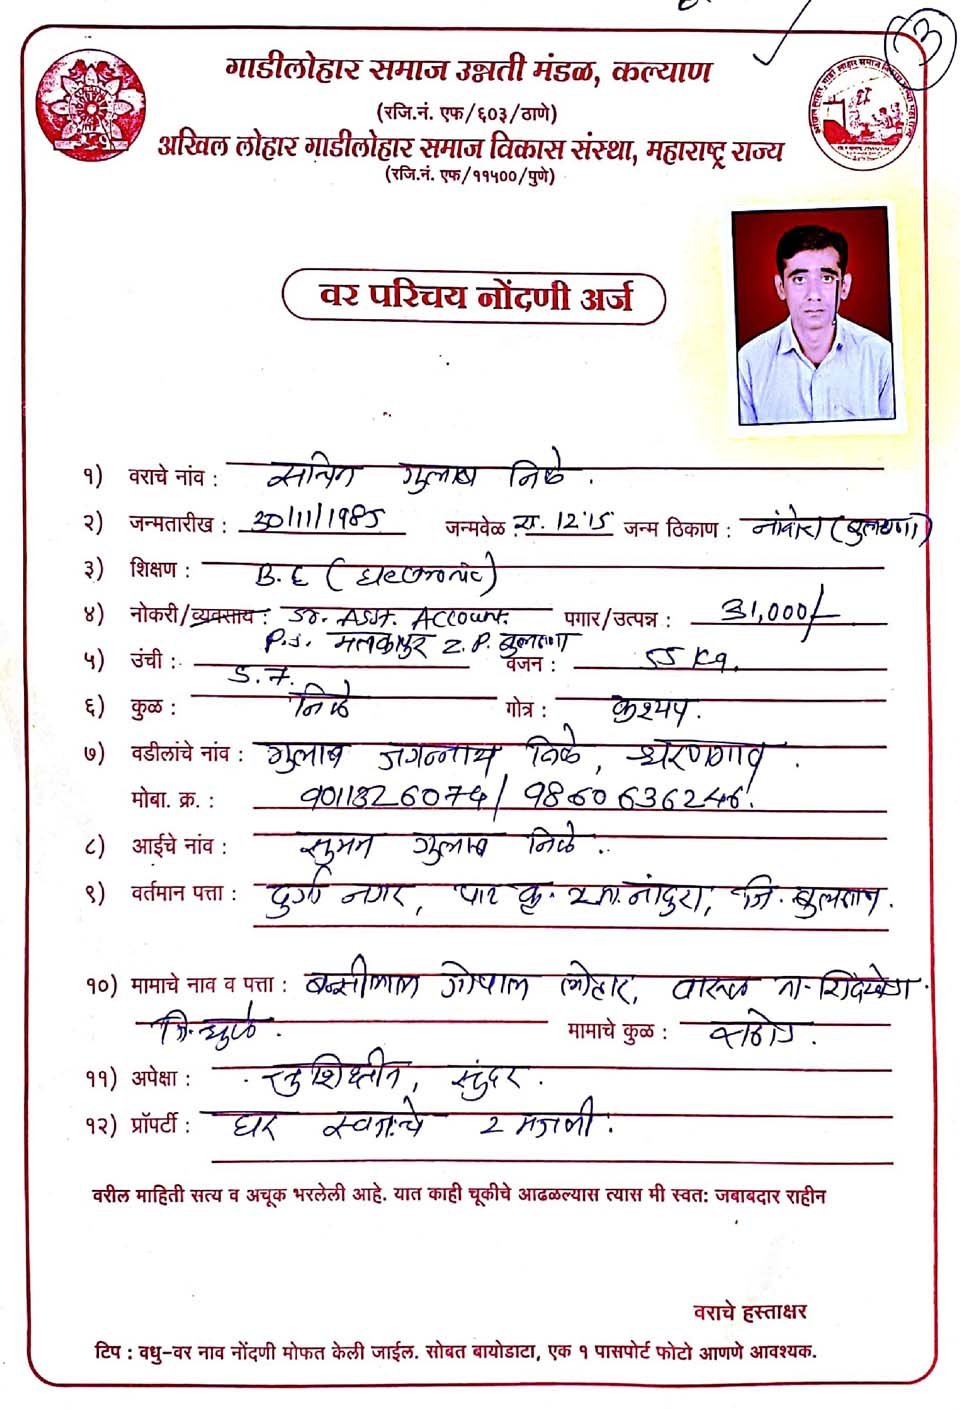 ३
गाडीलोहार समाज उन्नती मंडळ, कल्याण
(रजि.नं. एफ/६०३/ठाणे)
अखिल लोहार गाडीलोहार समाज विकास संस्था, महाराष्ट्र राज्य
(रजि.नं. एफ/११५००/पुणे)
वर परिचय नोंदणी अर्ज
१) वराचे नांव : सचिन गुलाब निळे .
२) जन्मतारीख : 30/11/1985 जन्मवेळ : रा. 12.15 जन्म ठिकाण : (बुलढाणा)
३) शिक्षण : B.E (Electronic)
४) नोकरी/व्यवसाय : Jr. Asst. Account. पगार/उत्पन्न : 31,000/-
P.S. मलकापुर Z.P. बुलढाणा
५) उंची : 5.7. वजन : 55 kg.
६) कुळ : निळे गोत्र : कश्यप.
७) वडीलांचे नांव : गुलाब जगन्नाथ निळे, धरणगाव .
मोबा. क्र. : 9860636246.
८) आईचे नांव : सुमन गुलाब निळे .
९) वर्तमान पत्ता : दुर्गा नगर, नांदुरा, जि. बुलढाणा.
१०) मामाचे नाव व पत्ता : बन्सीलाल गोपाल लोहार, वारुळ ता-शिंदखेडा.
जि. धुळे. मामाचे कुळ :
११) अपेक्षा : सुशिक्षीत, सुंदर .
१२) प्रॉपर्टी : घर स्वतःचे 2 मजली.
वरील माहिती सत्य व अचूक भरलेली आहे. यात काही चूकीचे आढळल्यास त्यास मी स्वत: जबाबदार राहीन
वराचे हस्ताक्षर
टिप : वधु-वर नाव नोंदणी मोफत केली जाईल. सोबत बायोडाटा, एक १ पासपोर्ट फोटो आणणे आवश्यक.